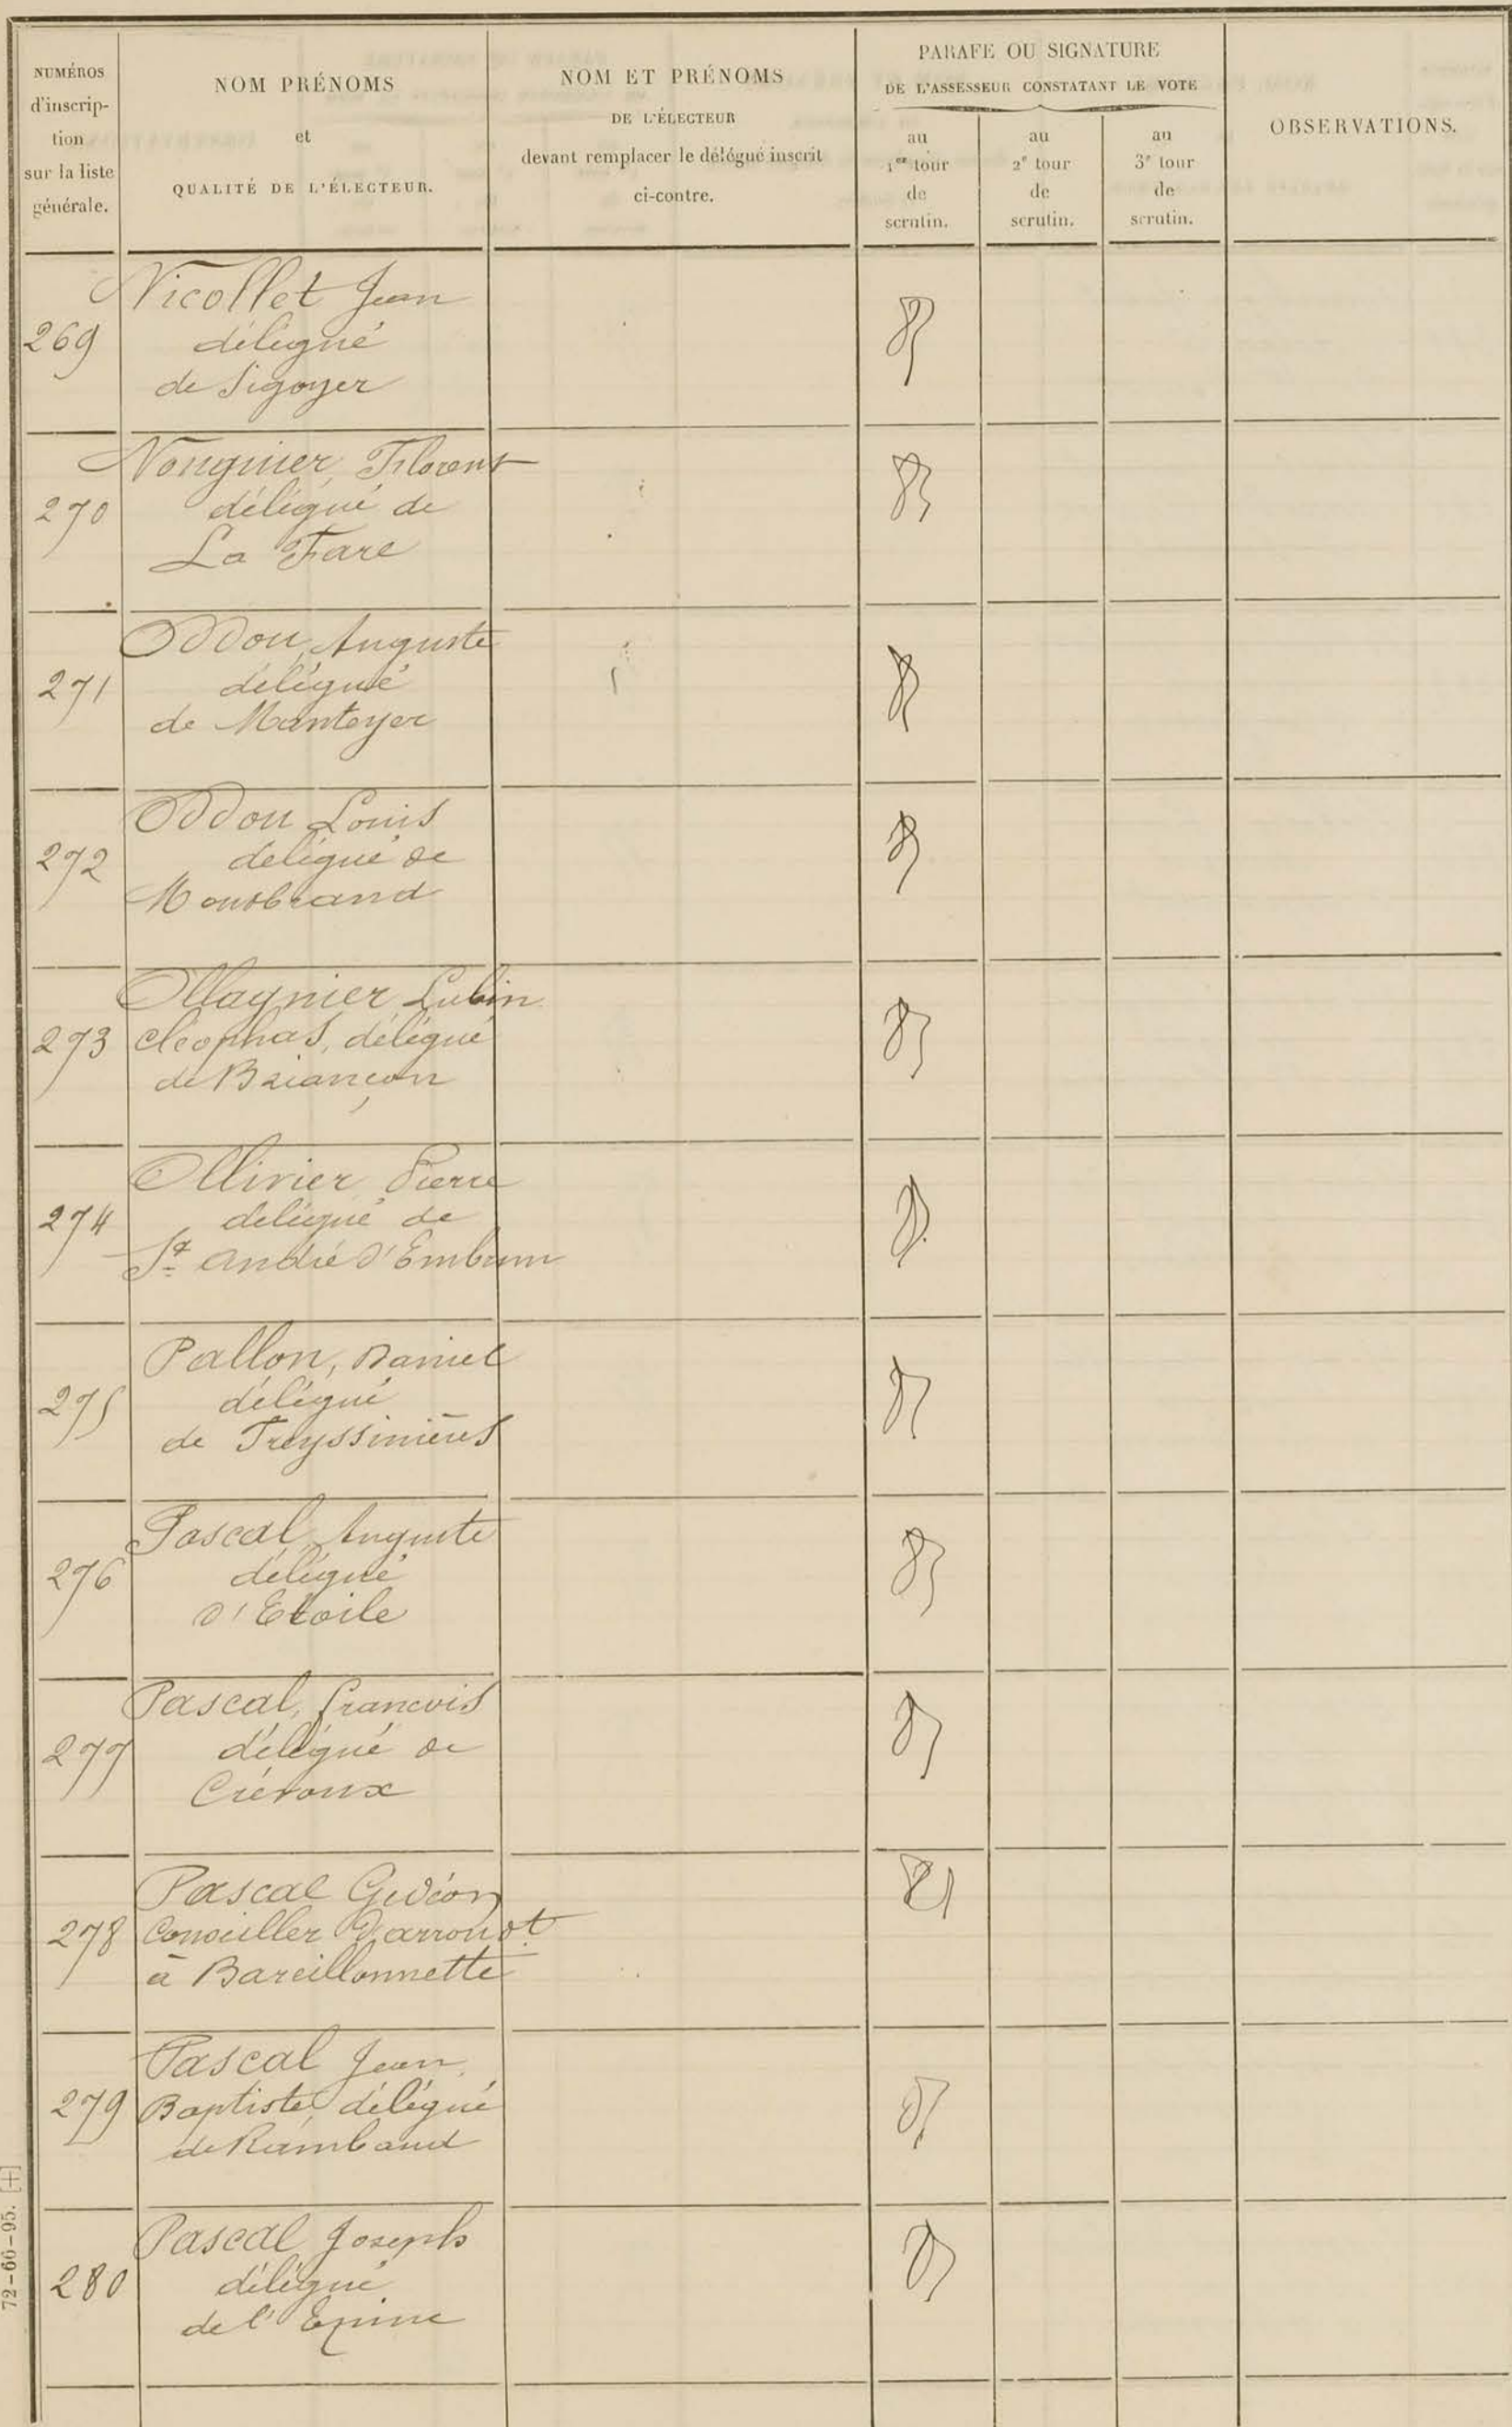 NUMÉROS
d'inscrip-
tion
sur la liste
générale.
NOM PRÉNOMS
et
QUALITÉ DE L'ÉLECTEUR.
NOM ET PRÉNOMS
DE L'ÉLECTEUR
devant remplacer le délégué inscrit
ci-contre.
PARAFE OU SIGNATURE
DE L'ASSESSEUR CONSTATANT LE VOTE
au
1er tour
de
scrutin.
au
2e tour
de
scrutin.
au
3e tour
de
scrutin.
OBSERVATIONS.
Nicollet Jean
269 délégué
de Sigoyer
Nonguier, Florent
270 délégué de
La Fare
Oddou, Auguste
271 délégué
de Manteyer
Oddou Louis
272 délégué de
Montbrand
Ollagnier Lubin
273 cléophas, délégué
de Briançon
Ollivier Pierre
274 délégué de
St André d'Embrun
Pallon, Daniel
275 délégué
de Freyssinières
Pascal, Auguste
276 délégué
d'Etoile
Pascal, françois
277 délégué de
Crévoux
Pascal Gédéon
278 Conseiller d'arrondt
à Bareillonnette
Pascal Jean
279 Baptiste, délégué
de Rambaud
Pascal Joseph
280 délégué
de l'Epine
72-66-95. [+]